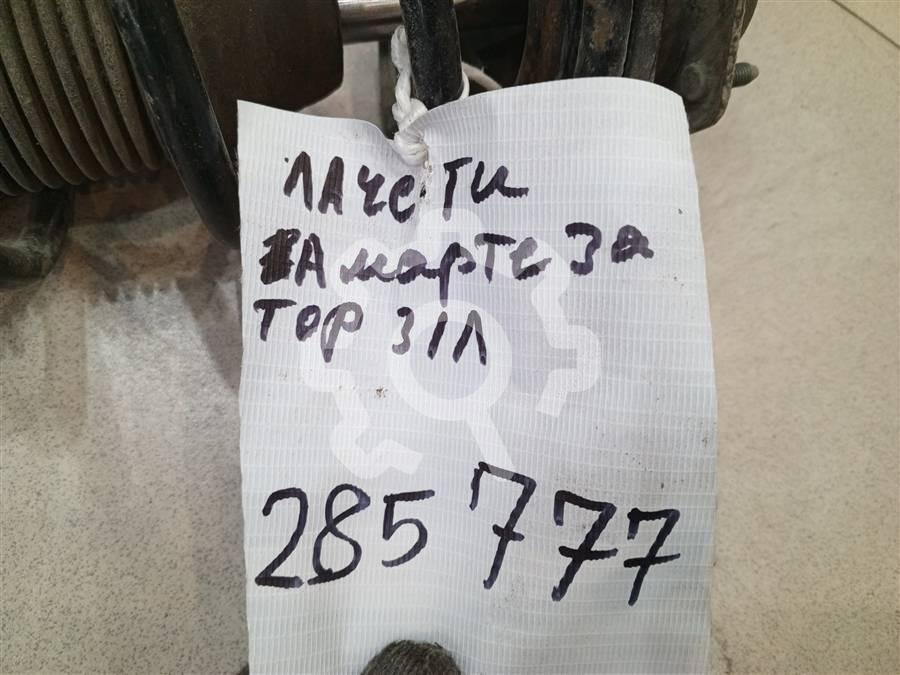 ЛАчеТи
ЗАмортезa
ТОР З/Л
285777